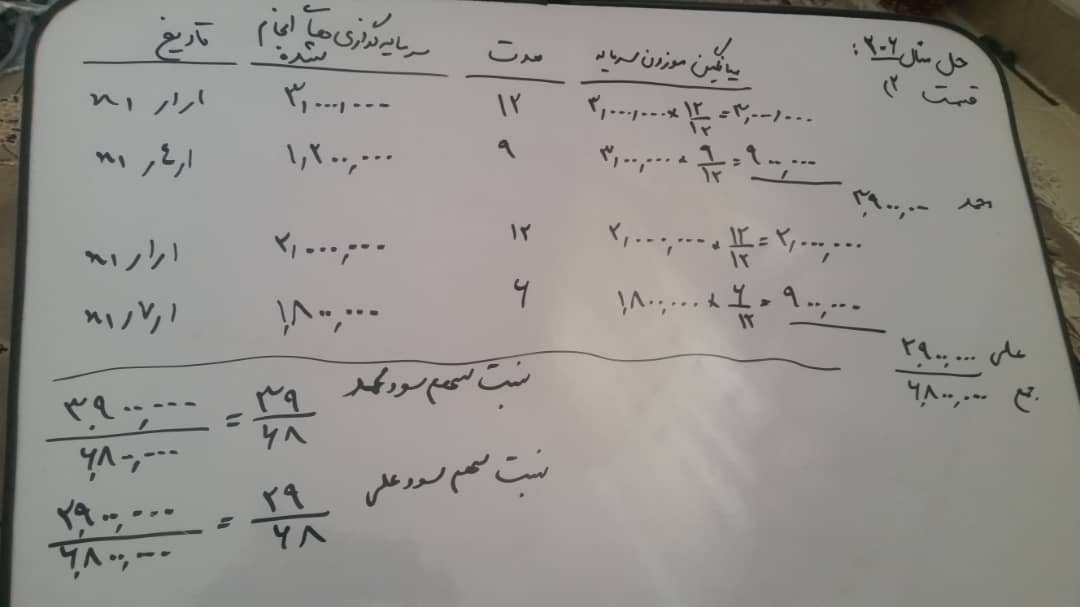 حل مثال ۶-۳:
قسمت ۲)
تاریخ سرمایه گذاری های انجام شده مدت میانگین موزون سرمایه
۱ر۱ر×۱ ۳,۰۰۰,۰۰۰ ۱۲ ۳,۰۰۰,۰۰۰ × ۱۲/۱۲ = ۳,۰۰۰,۰۰۰
۱ر۴ر×۱ ۱,۲۰۰,۰۰۰ ۹ × ۹/۱۲ = ۹۰۰,۰۰۰
۳,۹۰۰,۰۰۰
۱ر۱ر×۱ ۲,۰۰۰,۰۰۰ ۱۲ ۲,۰۰۰,۰۰۰ × ۱۲/۱۲ = ۲,۰۰۰,۰۰۰
۱ر۷ر×۱ ۱,۸۰۰,۰۰۰ ۶ ۱,۸۰۰,۰۰۰ × ۶/۱۲ = ۹۰۰,۰۰۰
علی ۲,۹۰۰,۰۰۰
جمع ۶,۸۰۰,۰۰۰
نسبت سهم سود محمد
۳,۹۰۰,۰۰۰/۶,۸۰۰,۰۰۰ = ۳۹/۶۸
نسبت سهم سود علی
۲,۹۰۰,۰۰۰/۶,۸۰۰,۰۰۰ = ۲۹/۶۸